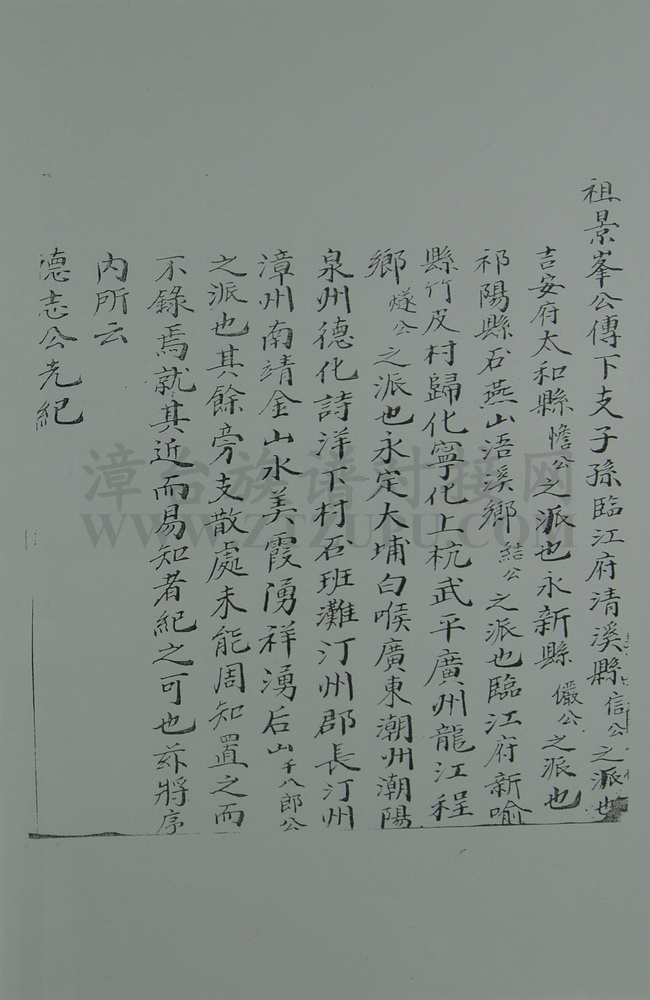 祖景峯公傳下支子孫臨江府清溪縣信公之派也
吉安府太和縣憺公之派也永新縣儼公之派也
祁陽縣石燕山浯溪鄉結公之派也臨江府新喻
縣竹皮村歸化寧化上杭武平廣州龍江程
鄉燧公之派也永定大埔白喉廣東潮州潮陽
泉州德化詩洋下村石班灘汀州郡長汀州
漳州南靖金山水美霞湧祥湧后山千八郎公
之派也其餘旁支散處未能周知置之而
不錄焉就其近而易知者紀之可也茲將序
內所云
德志公先紀
漳台族谱对接网
WWW.ZTZUPU.COM